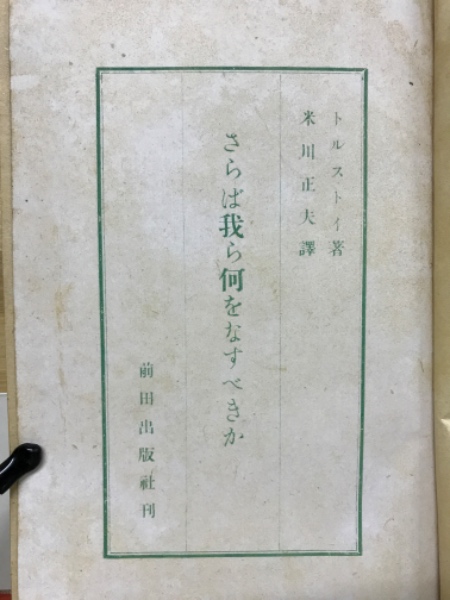 トルストイ著
米川正夫譯
さらば我ら何をなすべきか
前田出版社刊